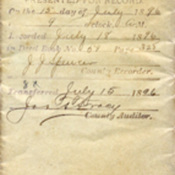 PRESENTED FOR RECORD
on the 15 day of July 1896
at 9 o'clock A.M.
Recorded July 18 1896
in Deed Rec. No. 58 Page 325
J J Spencer
County Recorder.
Transferred July 15 1896
Jas. Tracy
County Auditor.